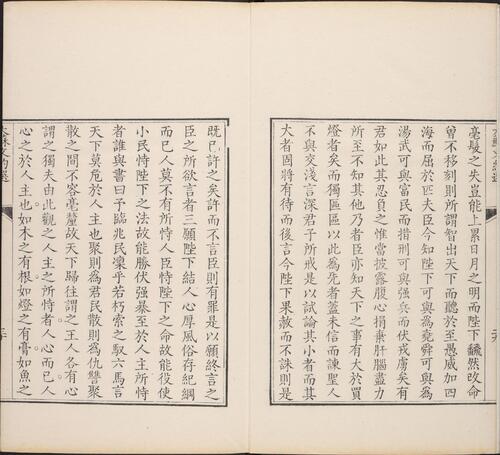 毫髮之失豈能上累日月之明而陛下飜然改命
曾不移刻則所謂智出天下而聽於至愚威加四
海而屈於匹夫臣今知陛下可與為堯舜可與為
湯武可與富民而措刑可與強兵而伏戎虜矣有
君如此其忍負之惟當披露腹心捐棄肝腦盡力
所至不知其他乃者臣亦知天下之事有大於買
燈者矣而獨區區以此為先者蓋未信而諫聖人
不與交淺言深君子所戒是以試論其小者而其
大者固將有待而後言今陛下果赦而不誅則是
既已許之矣許而不言臣則有罪是以願終言之
臣之所欲言者三願陛下結人心厚風俗存紀綱
而已人莫不有所恃人臣恃陛下之命故能役使
小民恃陛下之法故能勝伏強暴至於人主所恃
者誰與書曰予臨兆民凜乎若朽索之馭六馬言
天下莫危於人主也聚則為君民散則為仇讐聚
散之間不容毫釐故天下歸往謂之王人各有心
謂之獨夫由此觀之人主之所恃者人心而已人
心之於人主也如木之有根如燈之有膏如魚之